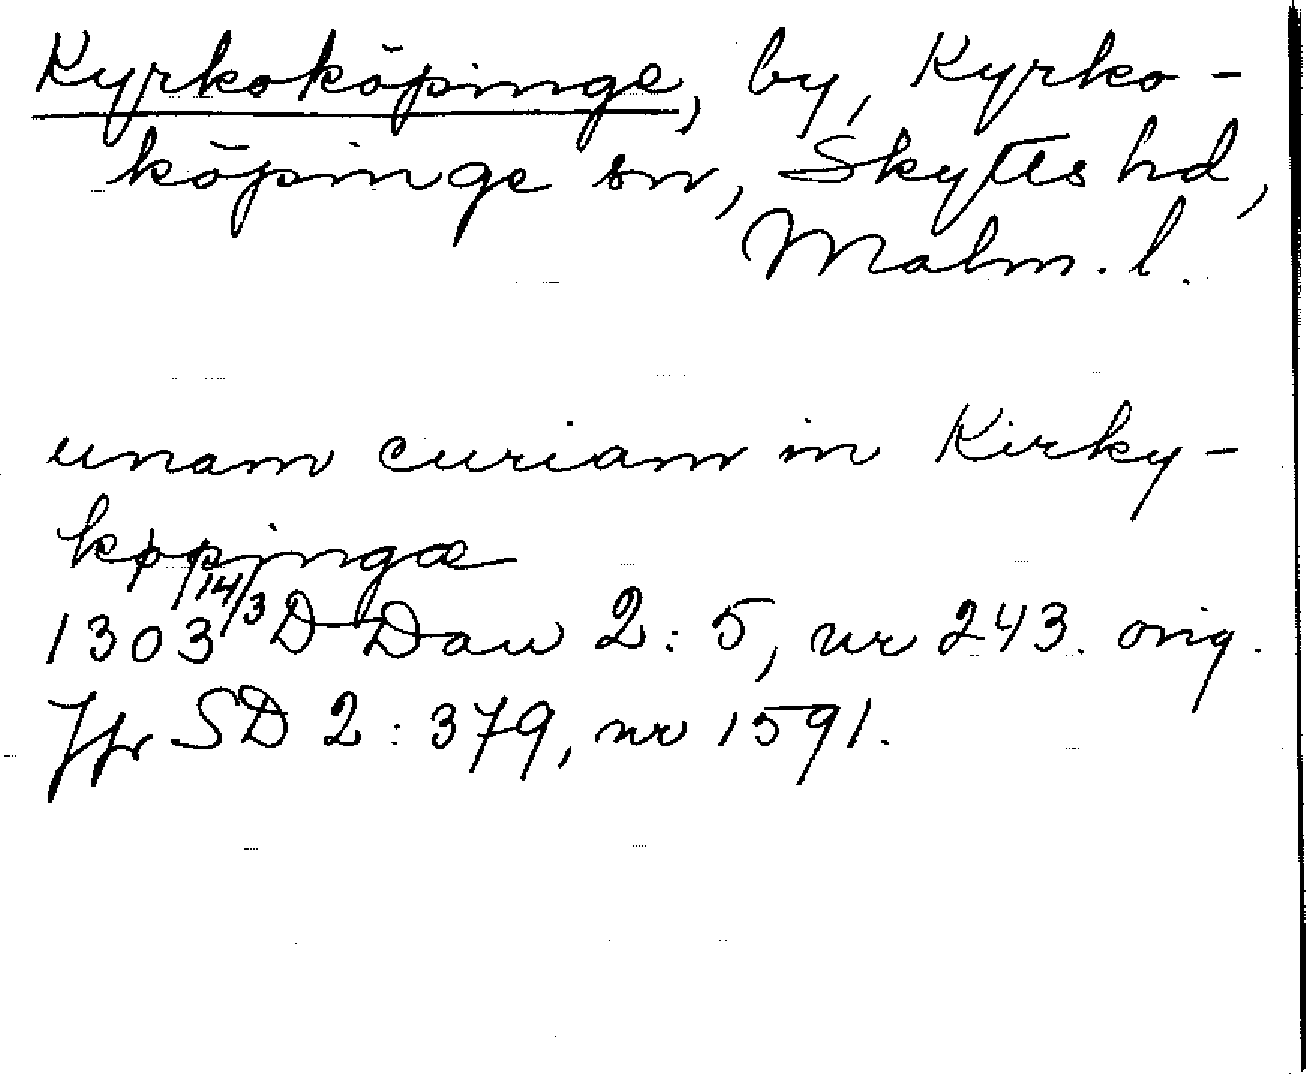 Kyrkoköpinge, by, Kyrko-
köpinge sn, Skytts hd,
Malm. l.
unam curiam in Kirky-
køpingæ
1303 14/3 D Dan 2:5, nr 243. orig.
Jfr SD 2:379, nr 1591.